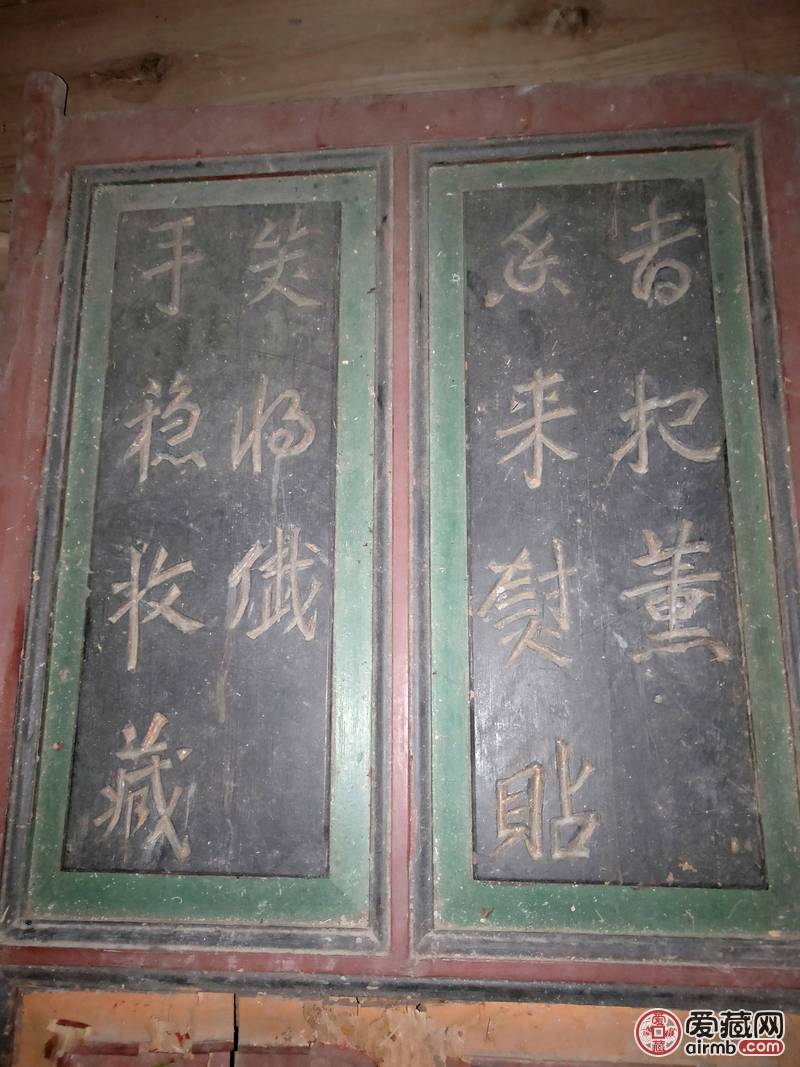 看把薰
香来熨貼
笑将纖
手穏收藏
爱藏网
airmb.com